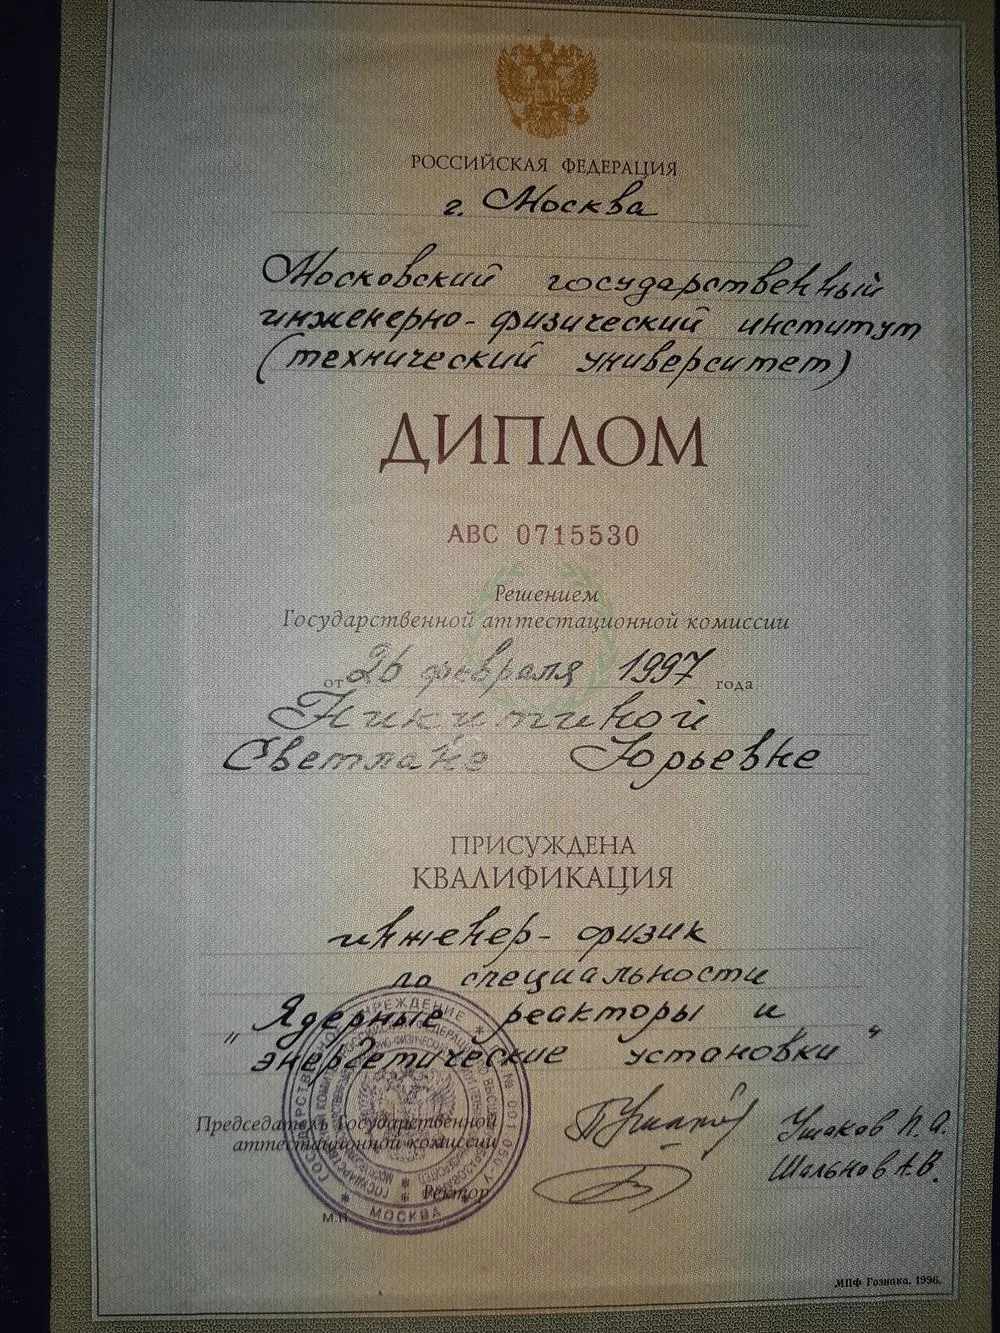 РОССИЙСКАЯ ФЕДЕРАЦИЯ
г. Москва
Московский государственный
инженерно-физический институт
(технический университет)
ДИПЛОМ
АВС 0715530
Решением
Государственной аттестационной комиссии
от 26 февраля 1997 года
Никитиной
Светлане Юрьевне
ПРИСУЖДЕНА
КВАЛИФИКАЦИЯ
инженер-физик
по специальности
"Ядерные реакторы и
энергетические установки"
Председатель Государственной
аттестационной комиссии
Ушаков П.А.
Шальнов А.В.
Ректор
М.П.
МОСКВА
МПФ Гознака. 1996.